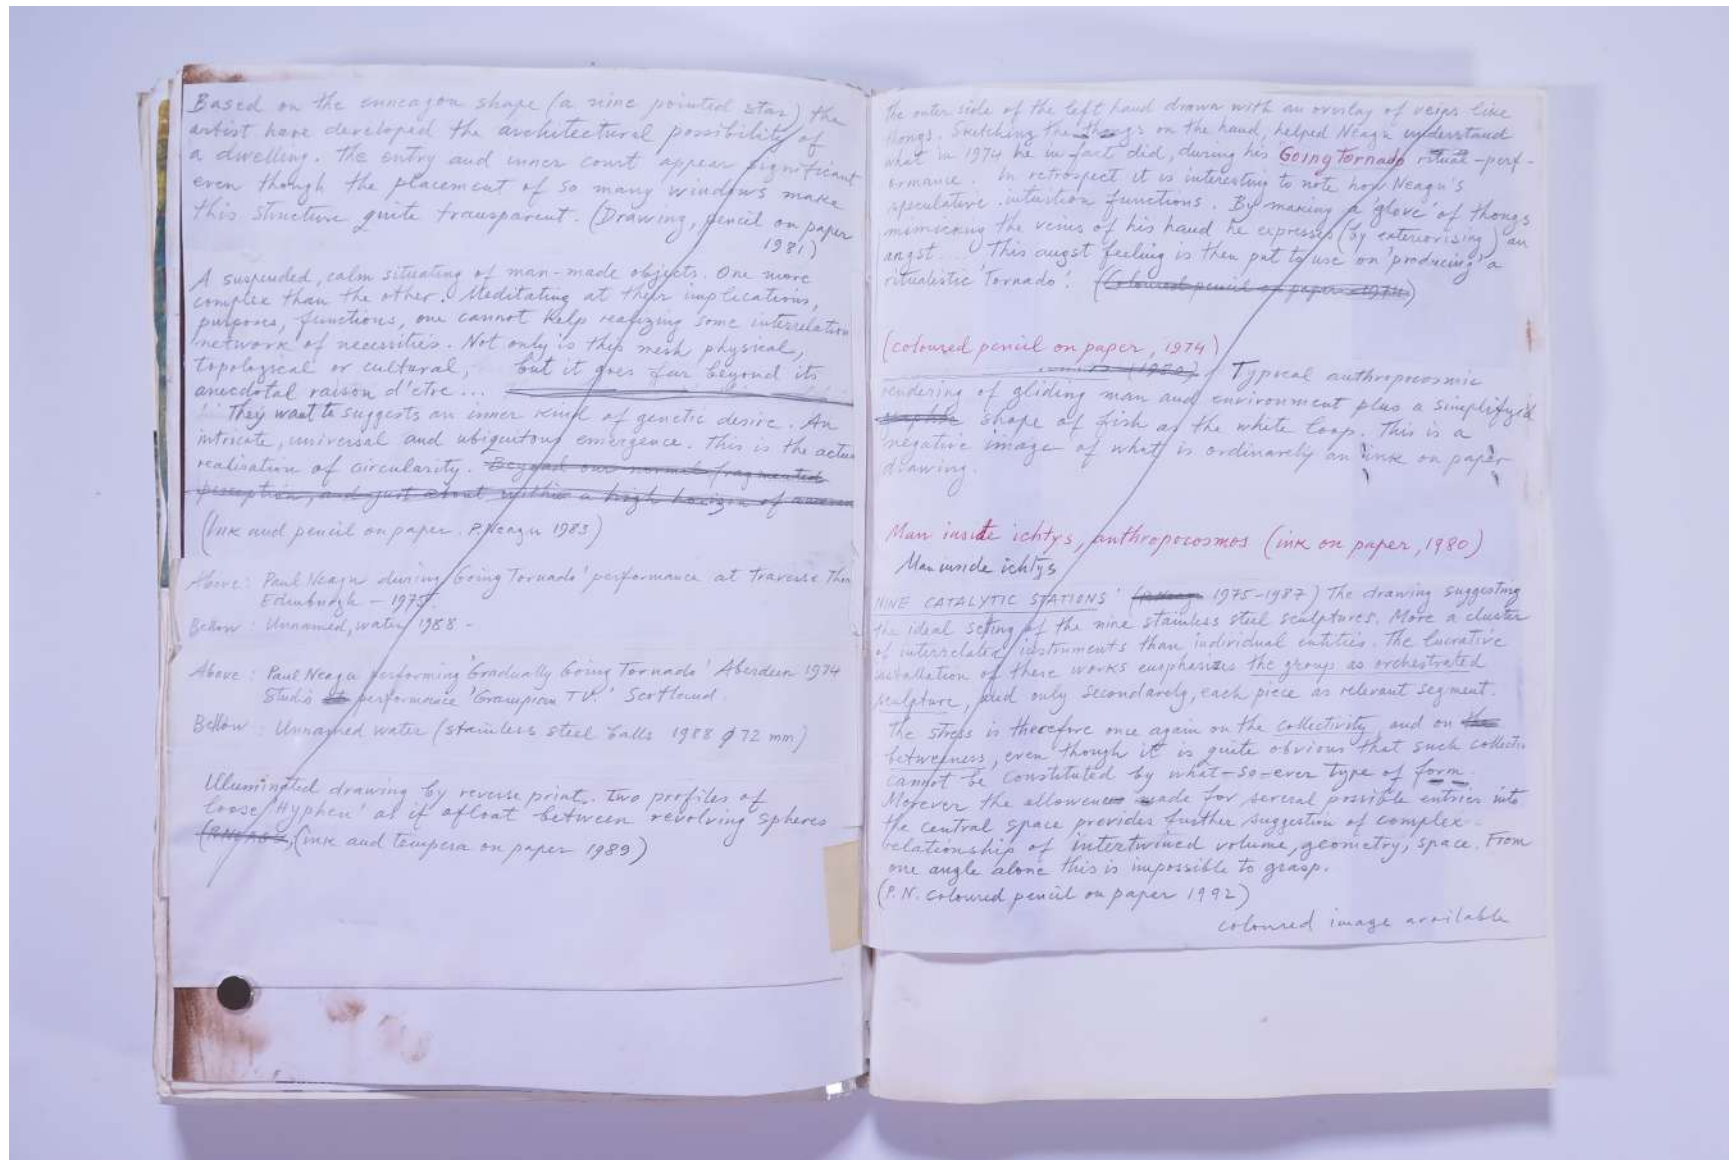 Based on the enneagon shape (a nine pointed star) the
artist have developed the architectural possibility of
a dwelling. The entry and inner court appear significant
even though the placement of so many windows make
this structure quite transparent. (Drawing, pencil on paper
1981)
A suspended, calm situating of man-made objects. One more
complex than the other. Meditating at their implications,
purposes, functions, one cannot help realizing some interrelation
network of necessities. Not only is this mesh physical,
topological or cultural, but it goes far beyond its
anecdotal raison d'etre...
They want to suggests an inner kind of genetic desire. An
intricate, universal and ubiquitous emergence. This is the actual
realisation of circularity. Beyond our normal fragmented
perception, and just about within a high horizon of
(Ink and pencil on paper. P. Neagu 1983)
Above: Paul Neagu during 'Going Tornado' performance at Traverse
Edinburgh - 1975.
Bellow: Unnamed, water 1988 -
Above: Paul Neagu performing 'Gradually Going Tornado' Aberdeen 1974
Studio performance 'Grampian TV.' Scotland.
Bellow: Unnamed water (stainless steel balls 1988 ϕ72 mm)
Illuminated drawing by reverse print. Two profiles of
loose 'Hyphen' as if afloat between revolving spheres
(ink and tempera on paper 1989)
the outer side of the left hand drawn with an overlay of veins like
thongs. Sketching the thongs on the hand, helped Neagu understand
what in 1974 he in fact did, during his Going Tornado ritual-perf-
ormance. In retrospect it is interesting to note how Neagu's
speculative intuition functions. By making a 'glove' of thongs
mimicking the veins of his hand he expresses (by exteriorising) an
angst... This angst feeling is then put to use on 'producing' a
ritualistic 'Tornado'. (Coloured pencil on paper 1974)
(coloured pencil on paper, 1974)
(1980) Typical anthropocosmic
rendering of gliding man and environment plus a simplifyed
shape of fish as the white loop. This is a
negative image of what is ordinarely an ink on paper
drawing.
Man inside ichtys, anthropocosmos (ink on paper, 1980)
Man inside ichtys
NINE CATALYTIC STATIONS' 1975-1987) The drawing suggesting
the ideal setting of the nine stainless steel sculptures. More a cluster
of interrelated instruments than individual entities. The lucrative
installation of these works emphasizes the group as orchestrated
sculpture, and only secondarely, each piece as relevant segment.
The stress is therefore once again on the collectivity, and on the
betweeness, even though it is quite obvious that such
cannot be constituted by what-so-ever type of form.
Morever the made for several possible entries into
the central space provides further suggestion of complex
relationship of intertwined volume, geometry, space. From
one angle alone this is impossible to grasp.
(P.N. coloured pencil on paper 1992)
coloured image available